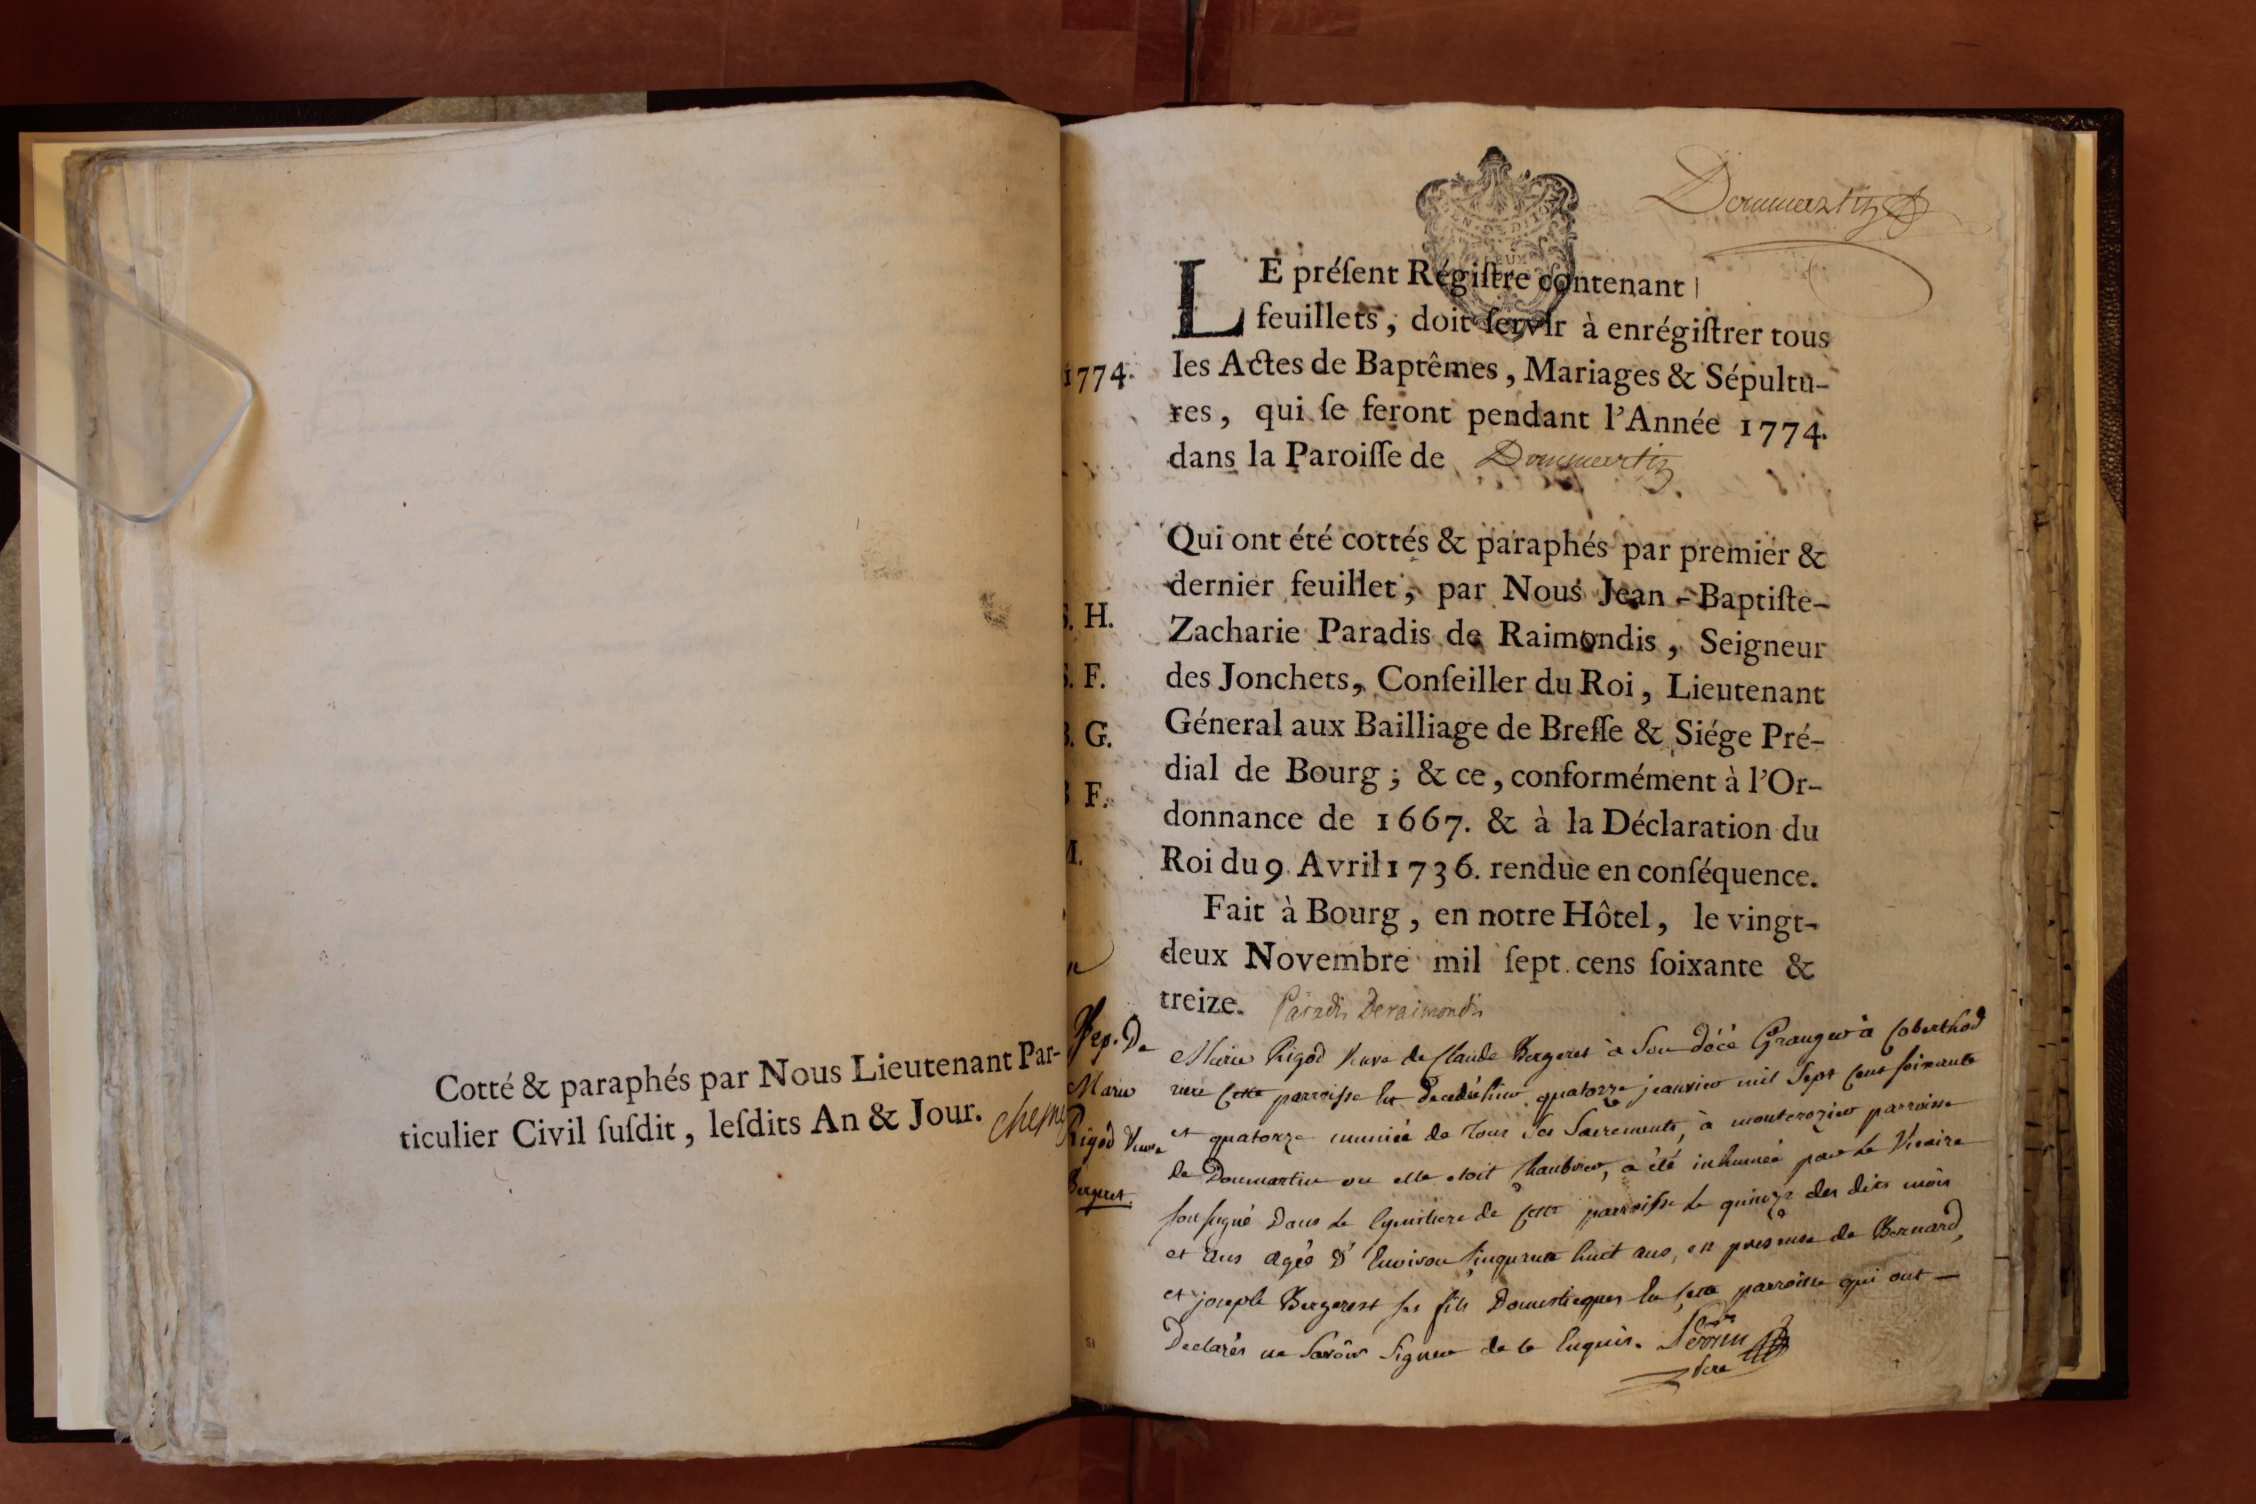 Cotté & paraphés par Nous Lieutenant Par-
ticulier Civil ſuſdit, leſdits An & Jour.
Dommartin
LE préſent Régiſtre contenant
feuillets, doit ſervir à enrégiſtrer tous
les Actes de Baptêmes, Mariages & Sépultu-
res, qui ſe feront pendant l'Année 1774.
dans la Paroiſſe de Dommartin
Qui ont été cottés & paraphés par premier &
dernier feuillet, par Nous Jean-Baptiſte-
Zacharie Paradis de Raimondis, Seigneur
des Jonchets, Conſeiller du Roi, Lieutenant
Géneral aux Bailliage de Breſſe & Siége Pré-
dial de Bourg; & ce, conformément à l'Or-
donnance de 1667. & à la Déclaration du
Roi du 9 Avril 1736. rendue en conſéquence.
Fait à Bourg, en notre Hôtel, le vingt-
deux Novembre mil ſept cens ſoixante &
treize. Paradis Deraimondis
1774.
S. H.
S. F.
B. G.
B F.
M.
Sep. De
Marie
Rigod Veuve
Bergeret
Marie Rigod Veuve de Claude Bergeret à Son décé Granger à
cette parroisse est decedée hier quatorze jeanvier mil Sept Cent soixante
et quatorze munie de tous les Sacrements, à parroisse
de Dommartin ou elle etoit, a été inhumée par le Vicaire
Sousigné Dans le Cymitiere de Cette parroisse le quinze des dits mois
et ans agée d'Environ Cinquante huit ans, en presence de Bernard,
et joseph Bergeret ses fils Domestiques en cette parroisse qui ont
Declarés ne Savoir Signer de ce Enquis. Perrin
Vicre